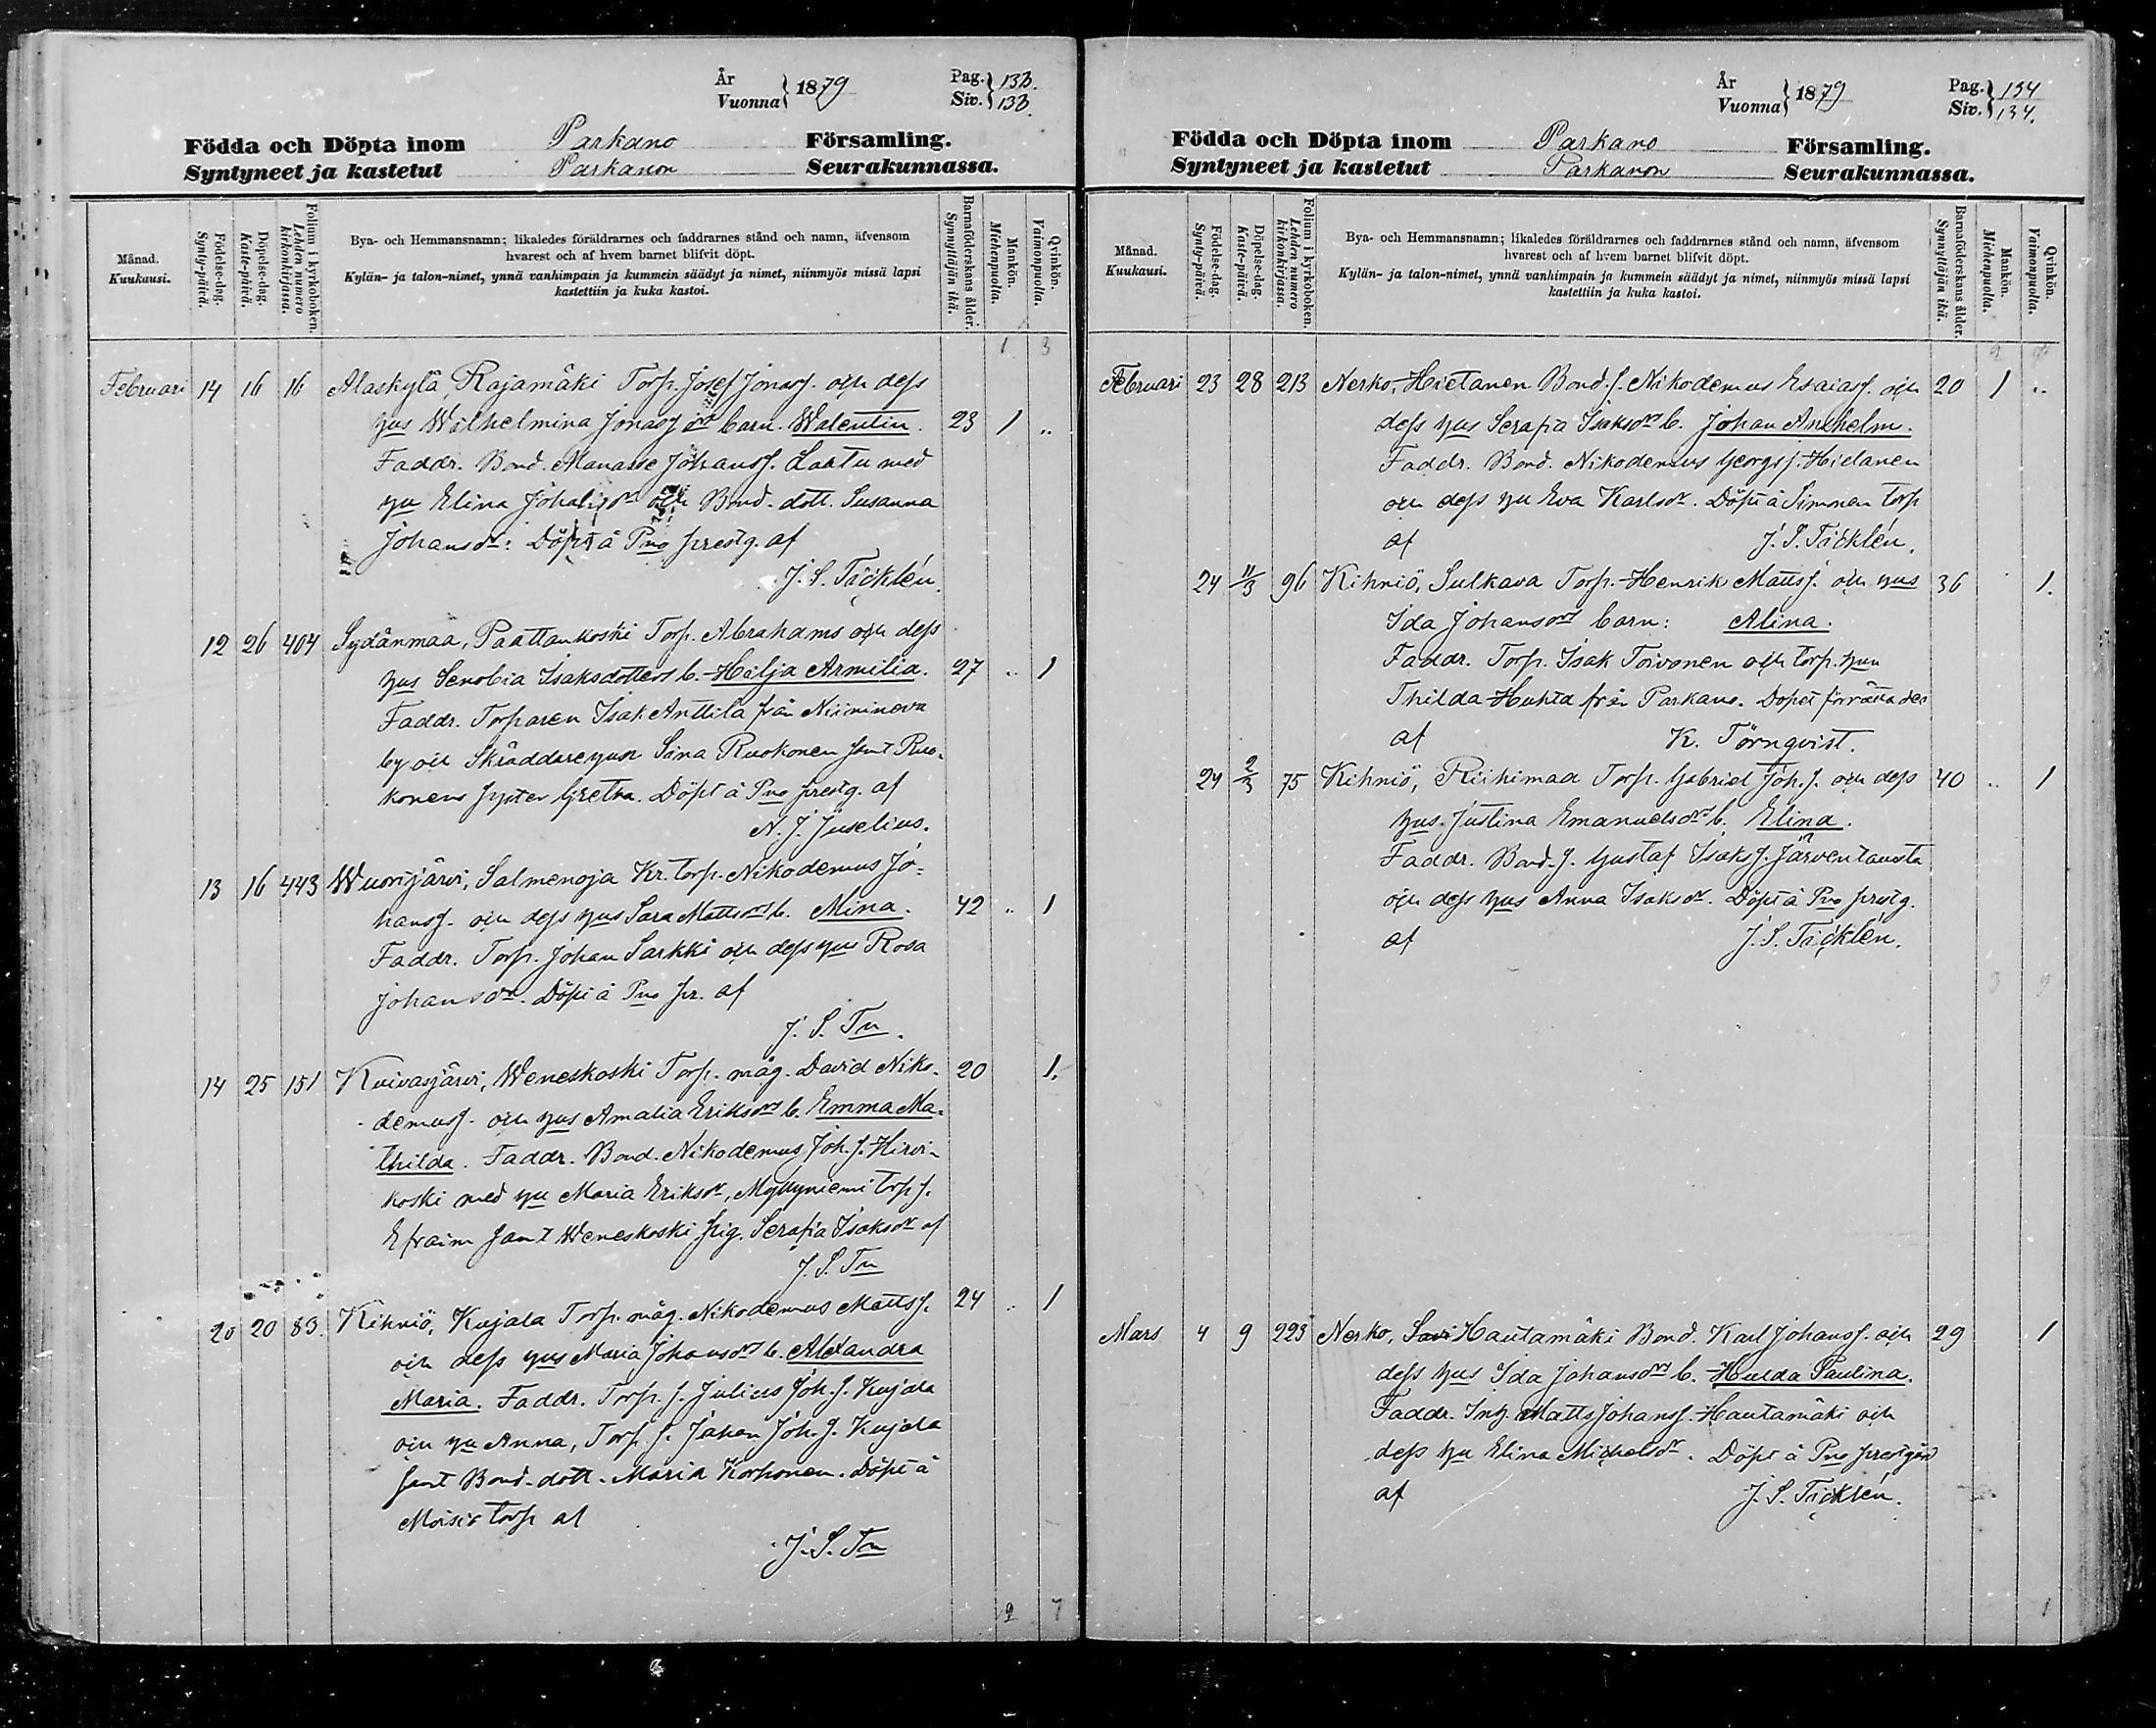 År
Vuonna } 1879
Pag. } 133.
Siv. } 133.
Födda och Döpta inom Parkano Församling.
Syntyneet ja kastetut Parkanon Seurakunnassa.
Månad. Kuukausi.
Födelse-dag. Synty-päivä.
Döpelse-dag. Kaste-päivä.
Folium i kyrkoboken. Lehden numero kirkonkirjassa.
Bya- och Hemmansnamn; likaledes föräldrarnes och faddrarnes stånd och namn, äfvensom
hvarest och af hvem barnet blifvit döpt.
Kylän- ja talon-nimet, ynnä vanhimpain ja kummein säädyt ja nimet, niinmyös missä lapsi
kastettiin ja kuka kastoi.
Barnaföderskans ålder. Synnyttäjän ikä.
Mankön. Miehenpuolta.
Qvinkön. Vaimonpuolta.
1 3
Februari 14 16 16 Alaskylä, Rajamäki Torp. Josef Jonass. och dess
hus Wilhelmina Jonasd barn. Walentin. 23 1 ..
Faddr. Bond. Manasse Johanss. Laatu med
hu Elina Johansdr och Bond. dott. Susanna
Johansdr: Döpt å Pno prestg. af
J. S. Täcklén.
12 26 404 Sydänmaa, Paattankoski Torp. Abrahams och dess
hus Senobia Isaksdotters b. Hilja Armilia. 27 .. 1
Faddr. Torparen Isak Anttila från Niinineva
by och Skräddarehun Sina Ruokonen samt Ruo-
konens syster Gretha. Döpt å Pno prestg. af
N. J. Juselius.
13 16 443 Wuorijärvi, Salmenoja Kr. torp. Nikodemus Jo=
hanss. och dess hus Sara Mattsdrs b. Mina. 42 .. 1
Faddr. Torp. Johan Sarkki och dess hus Rosa
Johansdr. Döpt å Pno pr. af
J. S. Tn.
14 25 151 Kuivasjärvi, Weneskoski Torp. måg. David Niko- 20 1.
demuss. och hus Amalia Eriksdrs b. Emma Ma-
thilda. Faddr. Bond. Nikodemus Joh. s. Hirvi-
koski med hu Maria Eriksdr, Myllyniemi torp s.
Efraim samt Weneskoski pig. Serafia Isaksdr af
J. S. Tn
20 20 83. Kihniö, Kujala Torp. måg. Nikodemus Mattss. 24 .. 1
och dess hus Maria Johansdrs b. Alexandra
Maria. Faddr. Torp. s. Julius Joh. s. Kujala
och hu Anna, Torp. s. Johan Joh. s. Kujala
samt Bond. dott. Maria Korhonen. Döpt å
Moisio torp af
J. S. Tn
2 7
År
Vuonna } 1879
Pag. } 134
Siv. } 134.
Födda och Döpta inom Parkano Församling.
Syntyneet ja kastetut Parkanon Seurakunnassa.
Månad. Kuukausi.
Födelse-dag. Synty-päivä.
Döpelse-dag. Kaste-päivä.
Folium i kyrkoboken. Lehden numero kirkonkirjassa.
Bya- och Hemmansnamn; likaledes föräldrarnes och faddrarnes stånd och namn, äfvensom
hvarest och af hvem barnet blifvit döpt.
Kylän- ja talon-nimet, ynnä vanhimpain ja kummein säädyt ja nimet, niinmyös missä lapsi
kastettiin ja kuka kastoi.
Barnaföderskans ålder. Synnyttäjän ikä.
Mankön. Miehenpuolta.
Qvinkön. Vaimonpuolta.
Februari 23 28 213 Nerko, Hietanen Bond. s. Nikodemus Esaiass. och 20 1 ..
dess hus Serafia Isaksdrs b. Johan Anshelm.
Faddr. Bond. Nikodemus Georgs s. Hietanen
och dess hu Eva Karlsdr. Döpt å Simonen torp
af J. S. Täcklén.
24 11/3 96 Kihniö, Sulkava Torp. Henrik Mattss. och hus 36 1.
Ida Johansdrs barn: Alina.
Faddr. Torp. Isak Toivonen och torp. hun
Thilda Huhta från Parkano. Dopet förrättades
af K. Törnqvist.
24 2/3 75 Kihniö, Riihimaa Torp. Gabriel Joh. s. och dess 40 .. 1
hus. Justina Emanuelsdrs b. Elina.
Faddr. Bond. s. Gustaf Isakss. Järventausta
och dess hus Anna Isaksdr. Döpt å Pno prestg.
af J. S. Täcklén.
3 9
Mars 4 9 223 Nerko, Savi Hautamäki Bond. Karl Johanss. och 29 1
dess hus Ida Johansdrs b. Hulda Paulina.
Faddr. Inh. Matts Johanss. Hautamäki och
dess hu Elina Michelsdr. Döpt å Pno prestgård
af J. S. Täcklén.
1